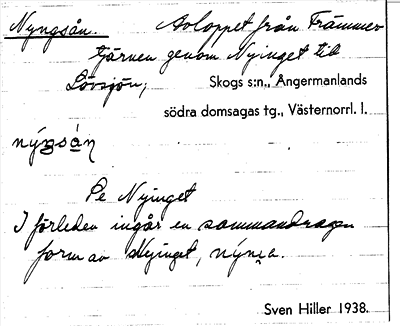 Nyngsån. Avloppet från Främmer
tjärnen genom Nyinget till
Lövsjön; Skogs s:n., Ångermanlands
södra domsagas tg., Västernorrl. l.
nýŋsån
Se Nyinget
I förleden ingår en sammandragen
form av Nyinget, nýŋa.
Sven Hiller 1938.